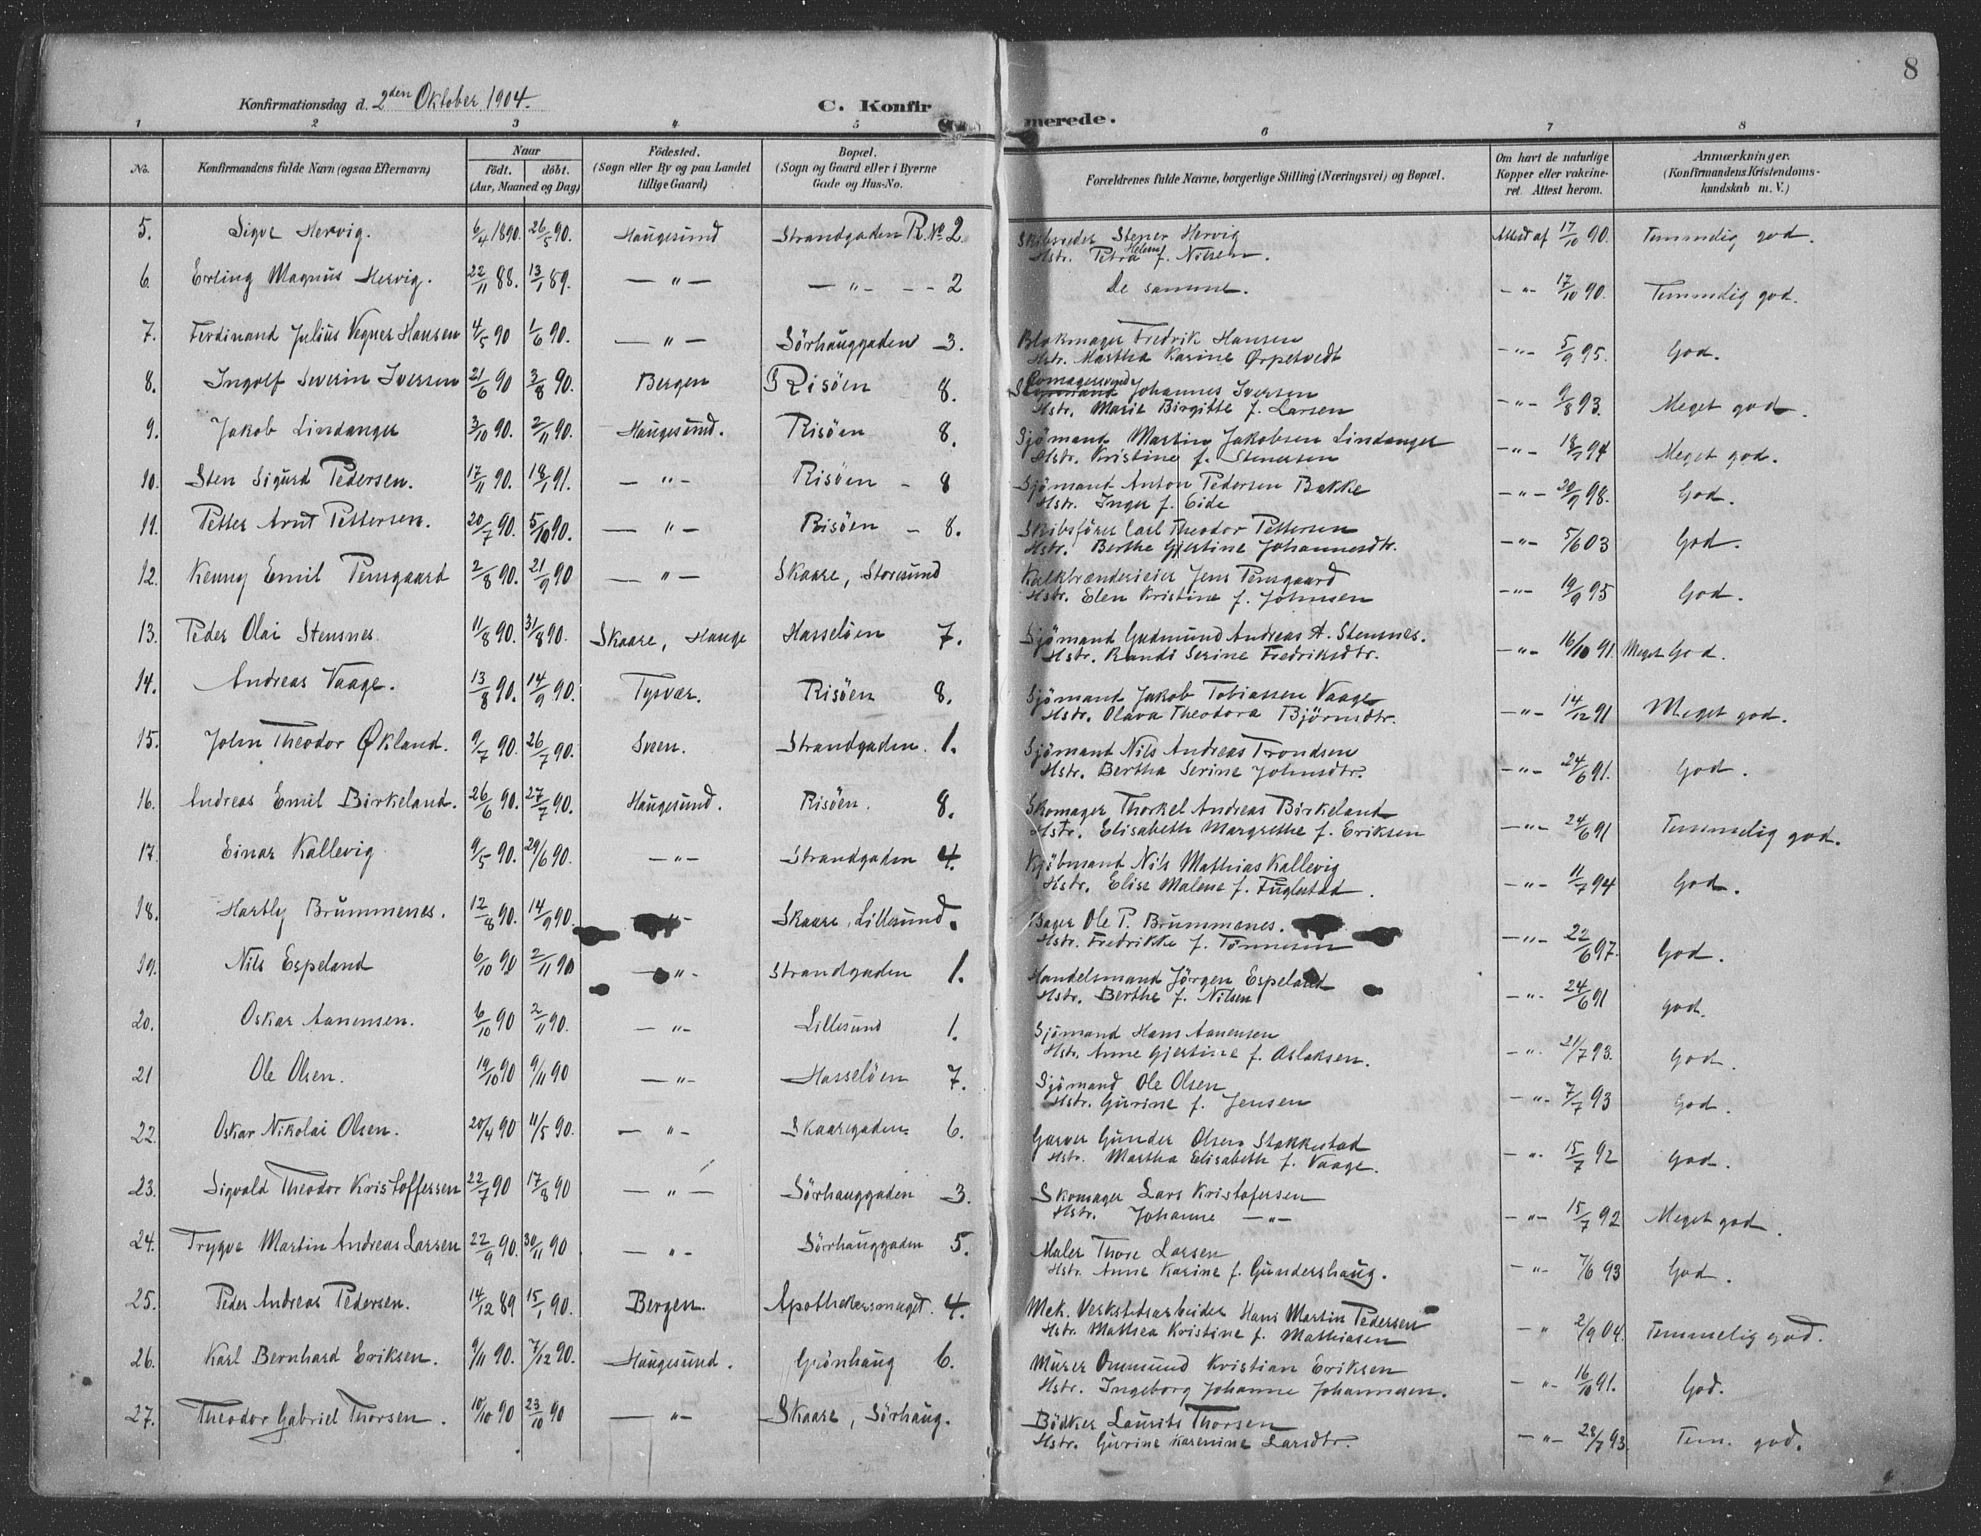 8
Konfirmationsdag d. 2den Oktober 1904.
C. Konfirmerede.
1 2 3 4 5 6 7 8
No. Konfirmandens fulde Navn (ogsaa Efternavn) Naar födt. döbt. (Aar, Maaned og Dag) Födested. (Sogn eller By og paa Landet tillige Gaard) Bopæl. (Sogn og Gaard eller i Byerne Gade og Hus-No. Forældrenes fulde Navne, borgerlige Stilling (Næringsvei) og Bopæl. Om havt de naturlige Kopper eller vakcineret. Attest herom. Anmærkninger. (Konfirmandens Kristendomskundskab m. V.)
5. Sigve Hervig. 6/4 1890. 26/5 90. Haugesund Strandgaden R. No 2. Skibsreder Stener Hervig Attest af 17/10 90. Temmelig god.
Hstr. Petra Helene f. Nilsen.
6. Erling Magnus Hervig. 22/11 88. 13/1 89. — " — — " — - - 2 De samme. - " - 17/10 90. Temmelig god.
7. Ferdinand Julius Vegner Hansen 4/5 90 1/6 90. — " — Sörhauggaden 3. Blokmager Fredrik Hansen - " - 5/9 95. God.
Hstr. Martha Karine Ørpetvedt
8. Ingolf Severin Iversen 21/6 90 3/8 90. Bergen Risöen 8. Skomagersvend Johannes Iversen - " - 9/8 93. Meget god.
Hstr. Marie Birgitte f. Larsen
9. Jakob Lindanger 3/10 90. 2/11 90. Haugesund. Risöen 8. Sjömand Martin Jakobsen Lindanger - " - 94 Meget god.
Hstr. Kristine f. Stenersen
10. Sten Sigurd Pedersen. 17/11 90. 18/1 91. — " — Risöen - 8 Sjömand Anton Pedersen Bakke - " - 20/9 98. God.
Hstr. Inger f. Eide
11. Petter Arnt Pettersen. 20/7 90. 5/10 90. — " — Risöen - 8. Skibsförer Carl Theodor Pettersen - " - 5/6 03 God.
Hstr. Berthe Gjertine Johannesdtr.
12. Kenny Emil Pensgaard 2/8 90. 21/9 90 — " — Skaare, Storesund Kalkbrænderieier Jens Pensgaard - " - 19/9 95 God.
Hstr. Elen Kristine f. Johnsen
13. Peder Olai Stensnes. 11/8 90. 31/8 90. Skaare, Hauge Hasselöen 7. Sjömand Gudmund Andreas A. Stensnes. - " - 16/10 91. Meget God.
Hstr. Randi Serine Fredriksdtr.
14. Andreas Vaage. 13/8 90. 14/9 90. Tysvær. Risöen 8. Sjömand Jakob Tobiassen Vaage - " - 14/12 91 Meget god.
Hstr. Olava Theodora Björnsdtr.
15. John Theodor Økland. 9/7 90. 26/7 90. Sveen. Strandgaden. 1. Sjömand Nils Andreas Trondsen - " - 24/6 91. God.
Hstr. Bertha Serine Johnsdtr.
16. Andreas Emil Birkeland. 26/6 90. 27/7 90. Haugesund. Risöen. 8. Skomager Thorkel Andreas Birkeland - " - 24/6 91 Temmelig god.
Hstr. Elisabeth Margrethe f. Eriksen
17. Einar Kallevig 9/5 90. 29/6 90. — " — Strandgaden 4. Kjöbmand Nils Mathias Kallevig - " - 11/7 94 God.
Hstr. Elise Malene f. Fuglestad.
18. Hartly Brummenes. 12/8 90. 14/9 90. Skaare, Lillesund. Bager Ole P. Brummenes. - " - 22/6 97. God.
Hstr. Fredrikke f. Tönnesen
19. Nils Espeland 6/10 90 2/11 90 - " - Strandgaden 1. Handelsmand Jörgen Espeland - " - 24/6 91 god.
Hstr. Berthe f. Nilsen
20. Oskar Aanensen. 6/10 90 2/11 90. - " - Lillesund 1. Sjömand Hans Aanensen - " - 21/7 93. God.
Hstr. Anne Gjertine f. Aslaksen.
21 Ole Olsen. 19/10 90 9/11 90 — " - Hasselöen 7. Sjömand Ole Olsen - " - 7/7 93 God.
Hstr. Gurine f. Jensen
22. Oskar Nikolai Olsen. 20/4 90 11/5 90. - " - Skaaregaden 6. Garver Gunder Olsen Stakkestad - " - 15/7 92 God.
Hstr. Martha Elisabeth f. Vaage.
23. Sigvald Theodor Kristoffersen 22/7 90 17/8 90 — " — Sörhauggaden 3. Skomager Lars Kristofersen - " - 15/7 92 Meget god.
Hstr. Johanne — " —
24. Trygve Martin Andreas Larsen 22/9 90. 30/11 90 - " - Sörhauggaden 5. Maler Thore Larsen - " - 7/6 93 God.
Hstr. Anne Karine f. Gundershaug.
25. Peder Andreas Pedersen. 14/12 89 15/1 90. Bergen. Apothekersmuget. 4. Mek. Verkstedsarbeider Hans Martin Pedersen - " 2/9 04. Temmelig god.
Hstr. Mathea Kristine f. Mathiasen
26. Karl Bernhard Eriksen. 9/11 90. 7/12 90. Haugesund. Grönhaug 6. Murer Ommund Kristian Eriksen - " - 16/10 91. God.
Hstr. Ingeborg Johanne Johannesen.
27. Theodor Gabriel Thorsen. 10/10 90 23/10 90 — " — Skaare, Sörhaug. Bödker Laurits Thorsen - " - 28/7 93. Tem. god.
Hstr. Gurine Karenine Larsdtr.